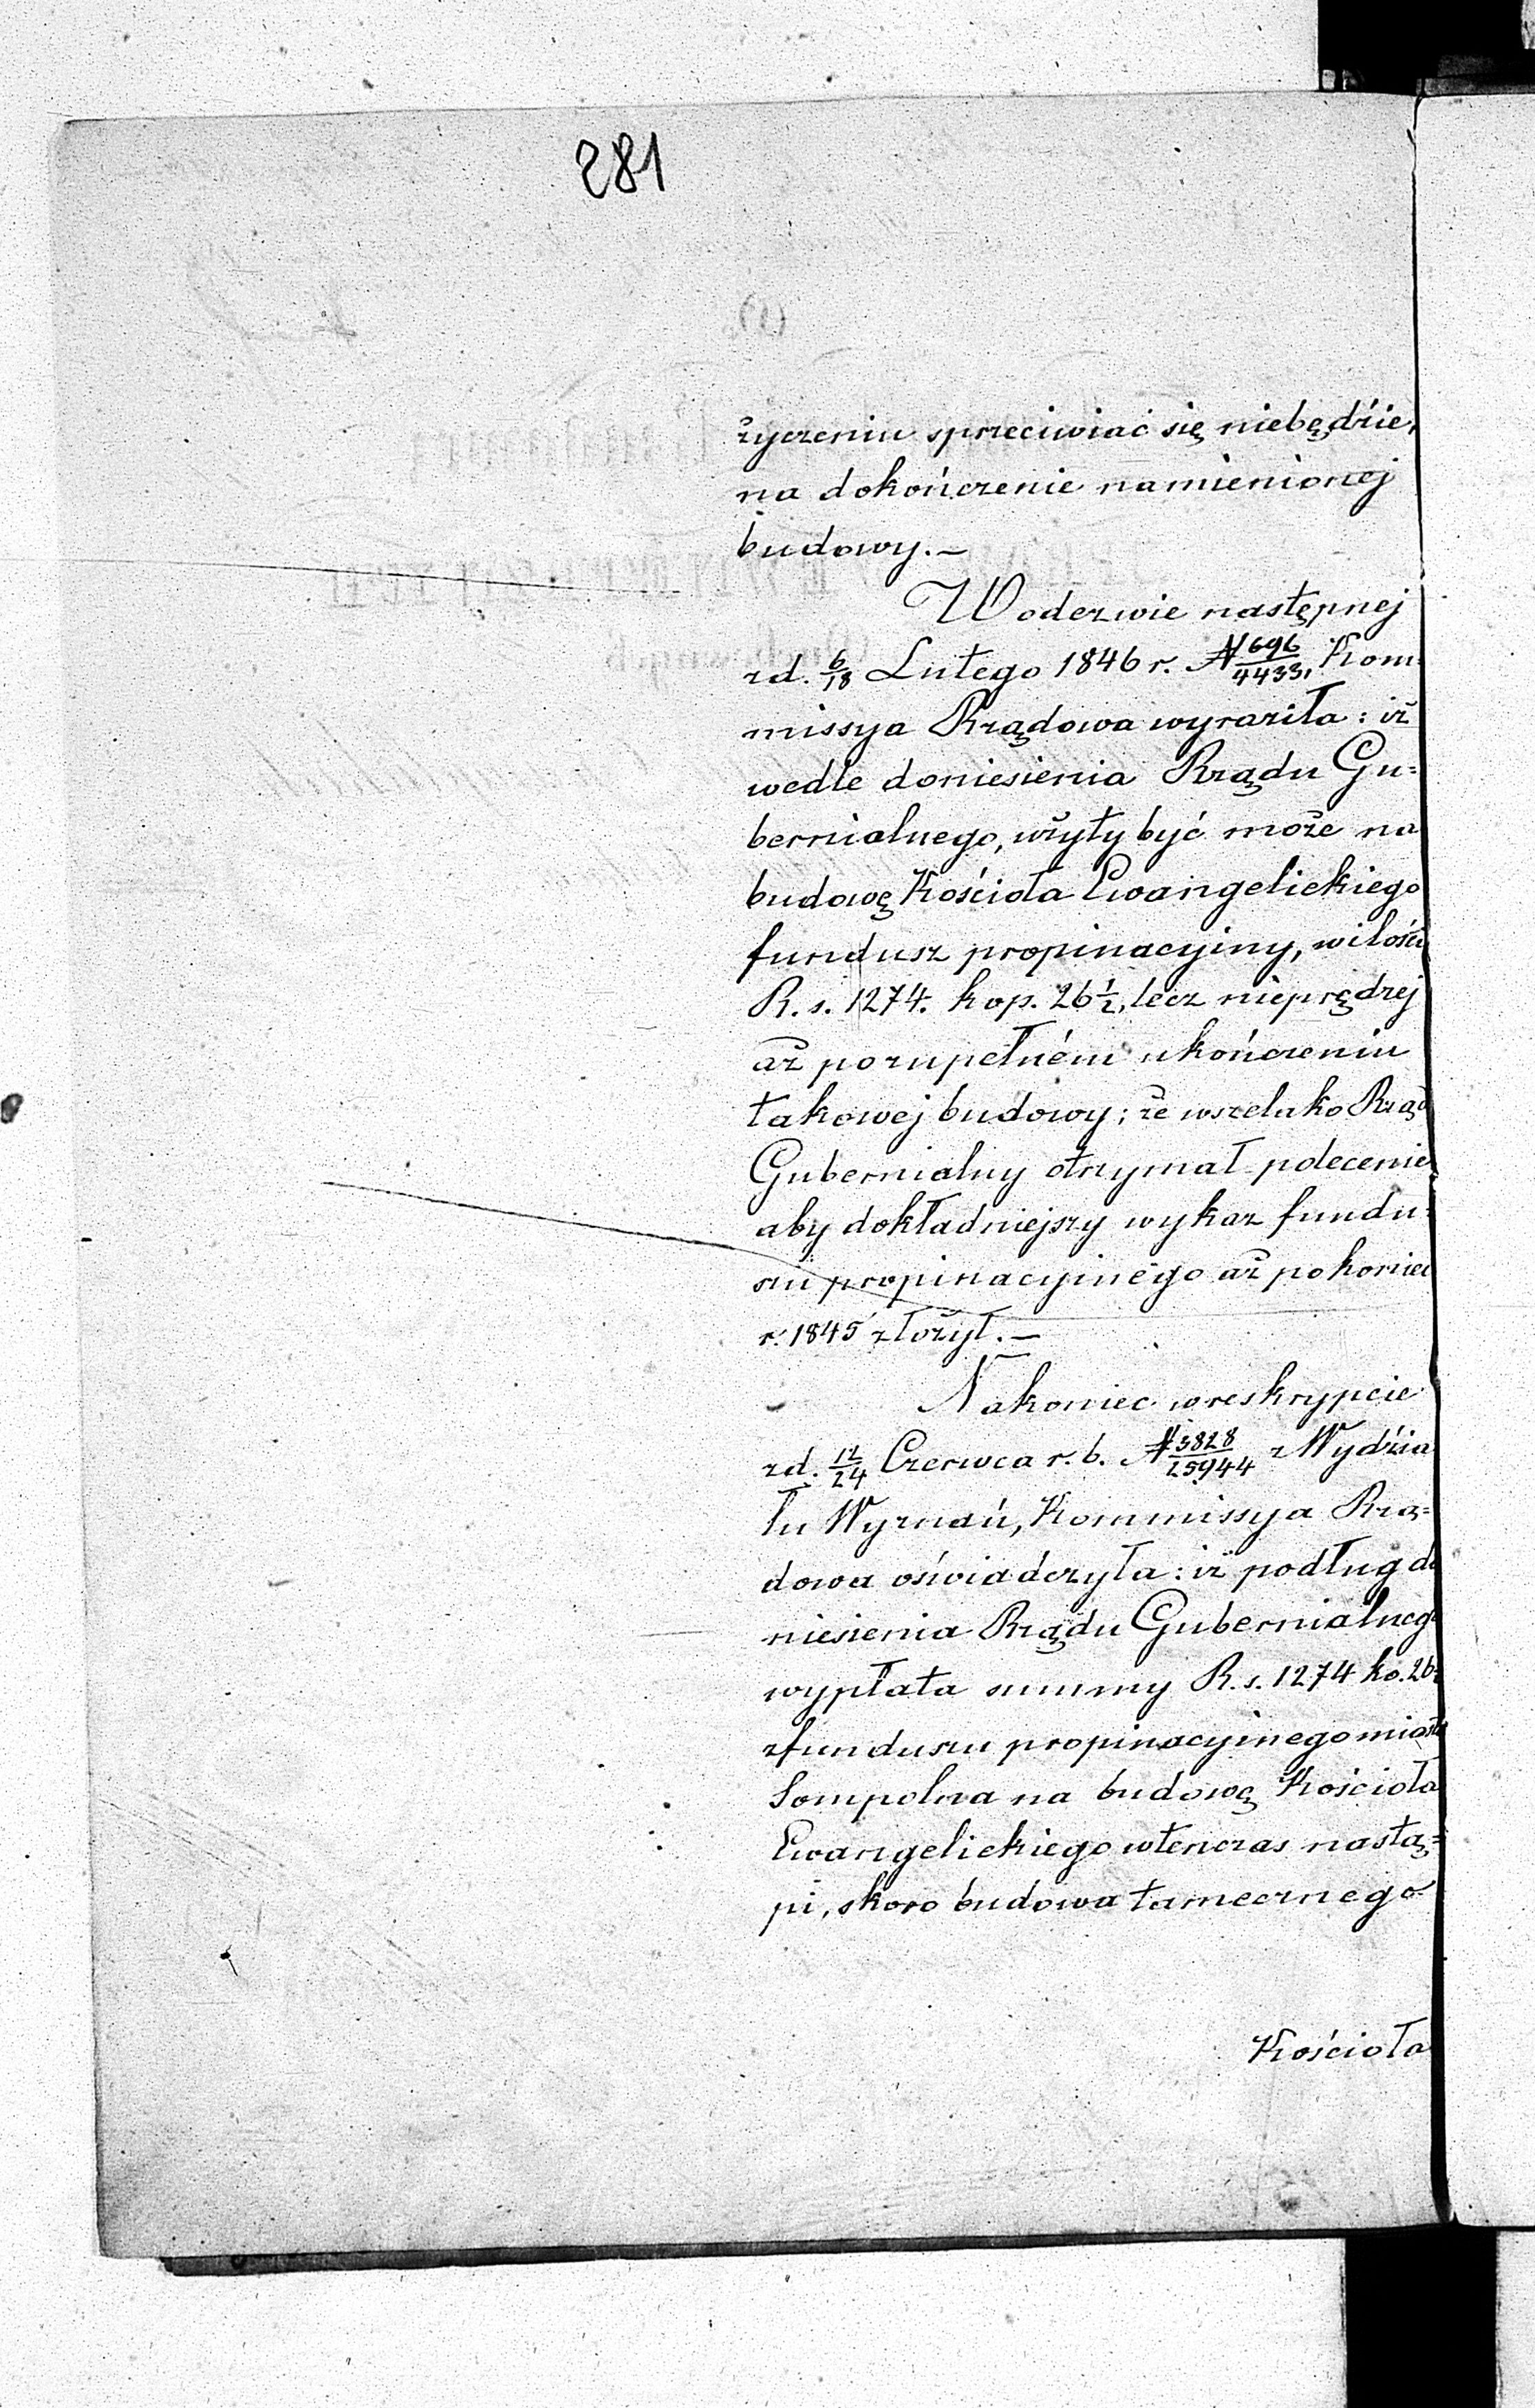 281
życzeniu sprzeciwiać się niebędzie,
na dokończenie namienionej
budowy.—
W odezwie następnej
zd. 6/18 Lutego 1846 r. N 696/4433, Kom-
missya Rządowa wyraziła: iż
wedle doniesienia Rządu Gu=
bernialnego, użyty być może na
budowę Kościoła Ewangelickiego
fundusz propinacyjny, wilości
R. s. 1274. kop. 26½, lecz nieprędzej
aż pozupełném ukończeniu
takowej budowy; że wszelako Rząd
Gubernialny otrzymał polecenie
aby dokładniejszy wykaz fundu=
szu propinacyjnego aż po koniec
r. 1845 złożył.—
Nakoniec wreskrypcie
zd. 12/24 Czerwca r. b. N 3828/25944 z Wydzia
łu Wyznań, Kommissya Rzą=
dowa oświadczyła: iż podług do
niesienia Rządu Gubernialnego
wypłata summy R. s. 1274 ko. 26
zfunduszu propinacyjnego miasta
Sompolna na budowę Kościoła
Ewangelickiego wtenczas nastą=
pi, skoro budowa tamecznego
Kościoła